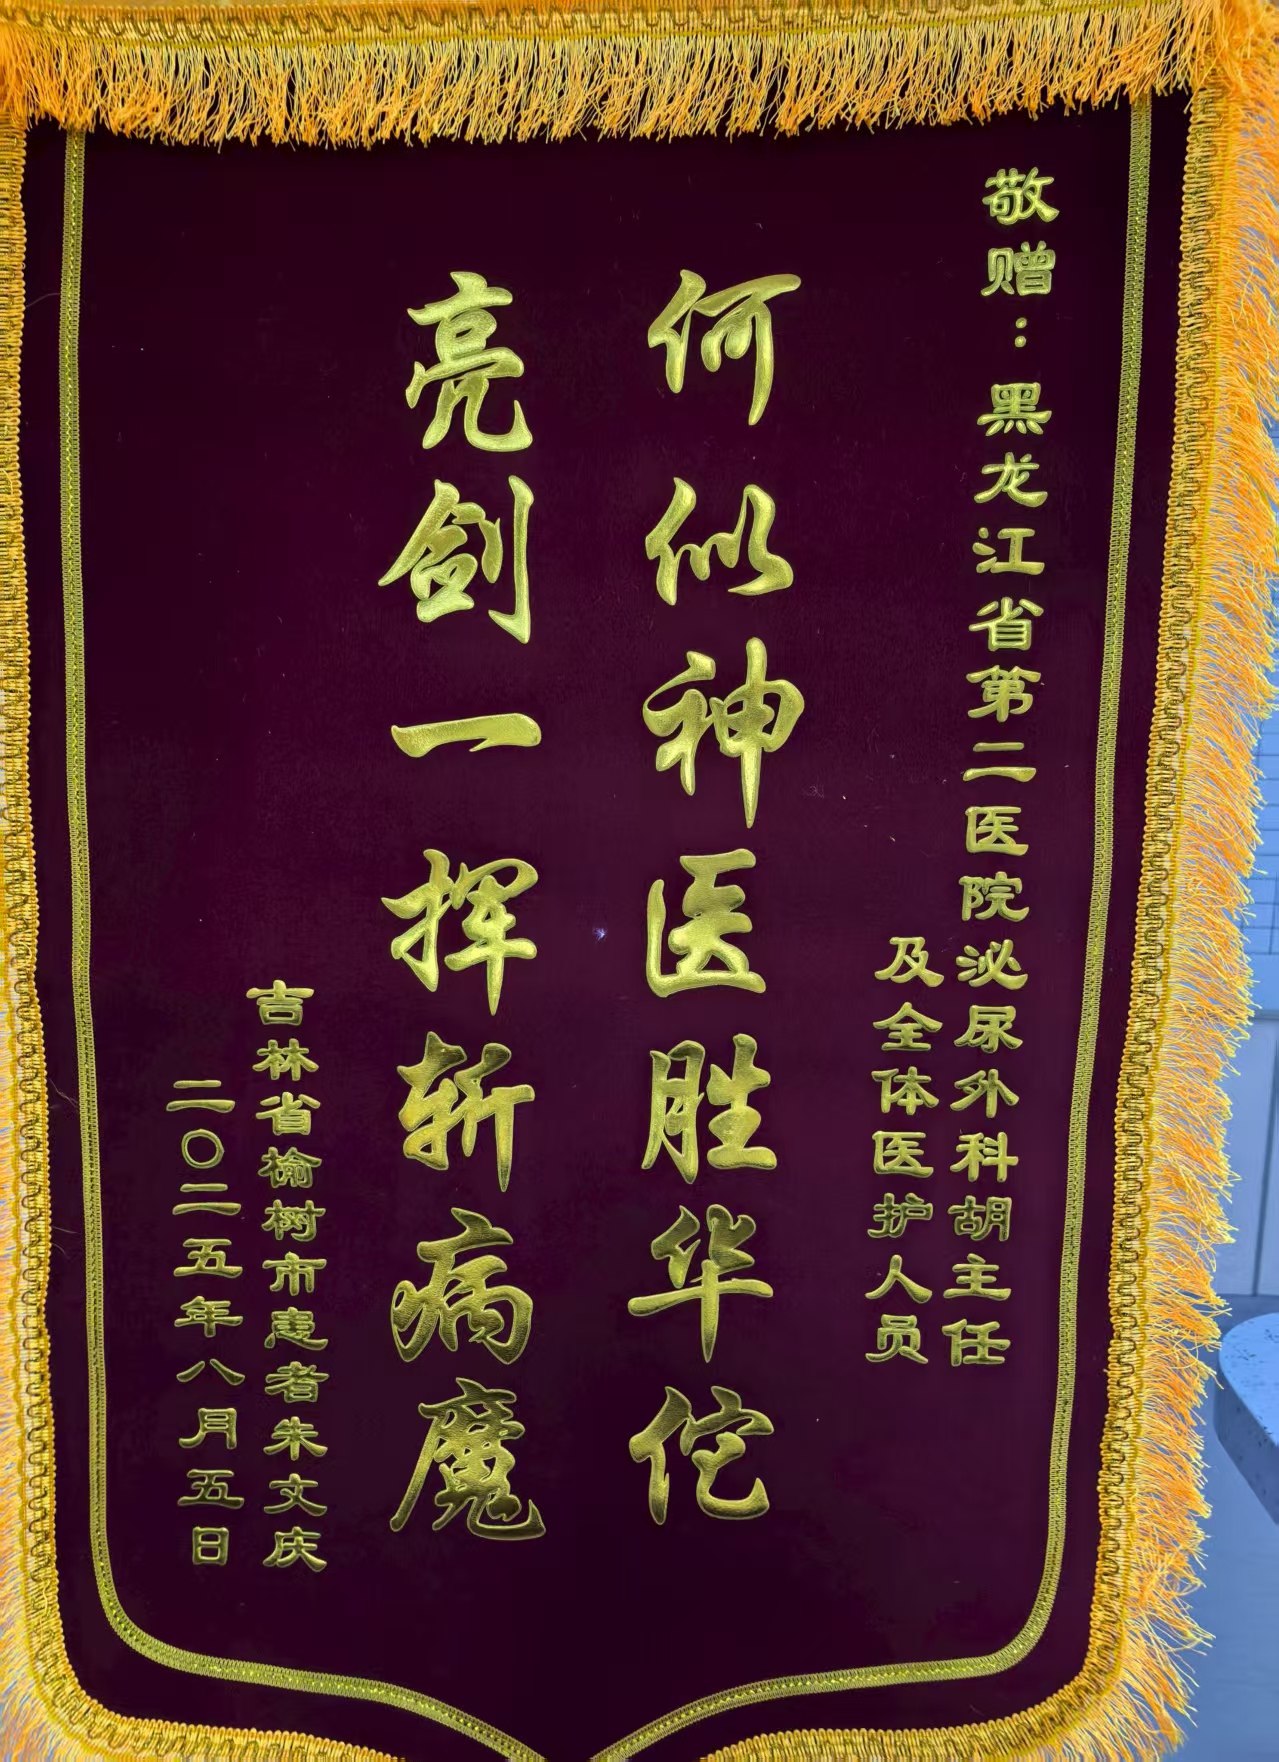 敬赠：黑龙江省第二医院泌尿外科胡主任
及全体医护人员
何似神医胜华佗
亮剑一挥斩病魔
吉林省榆树市患者朱文庆
二〇二五年八月五日